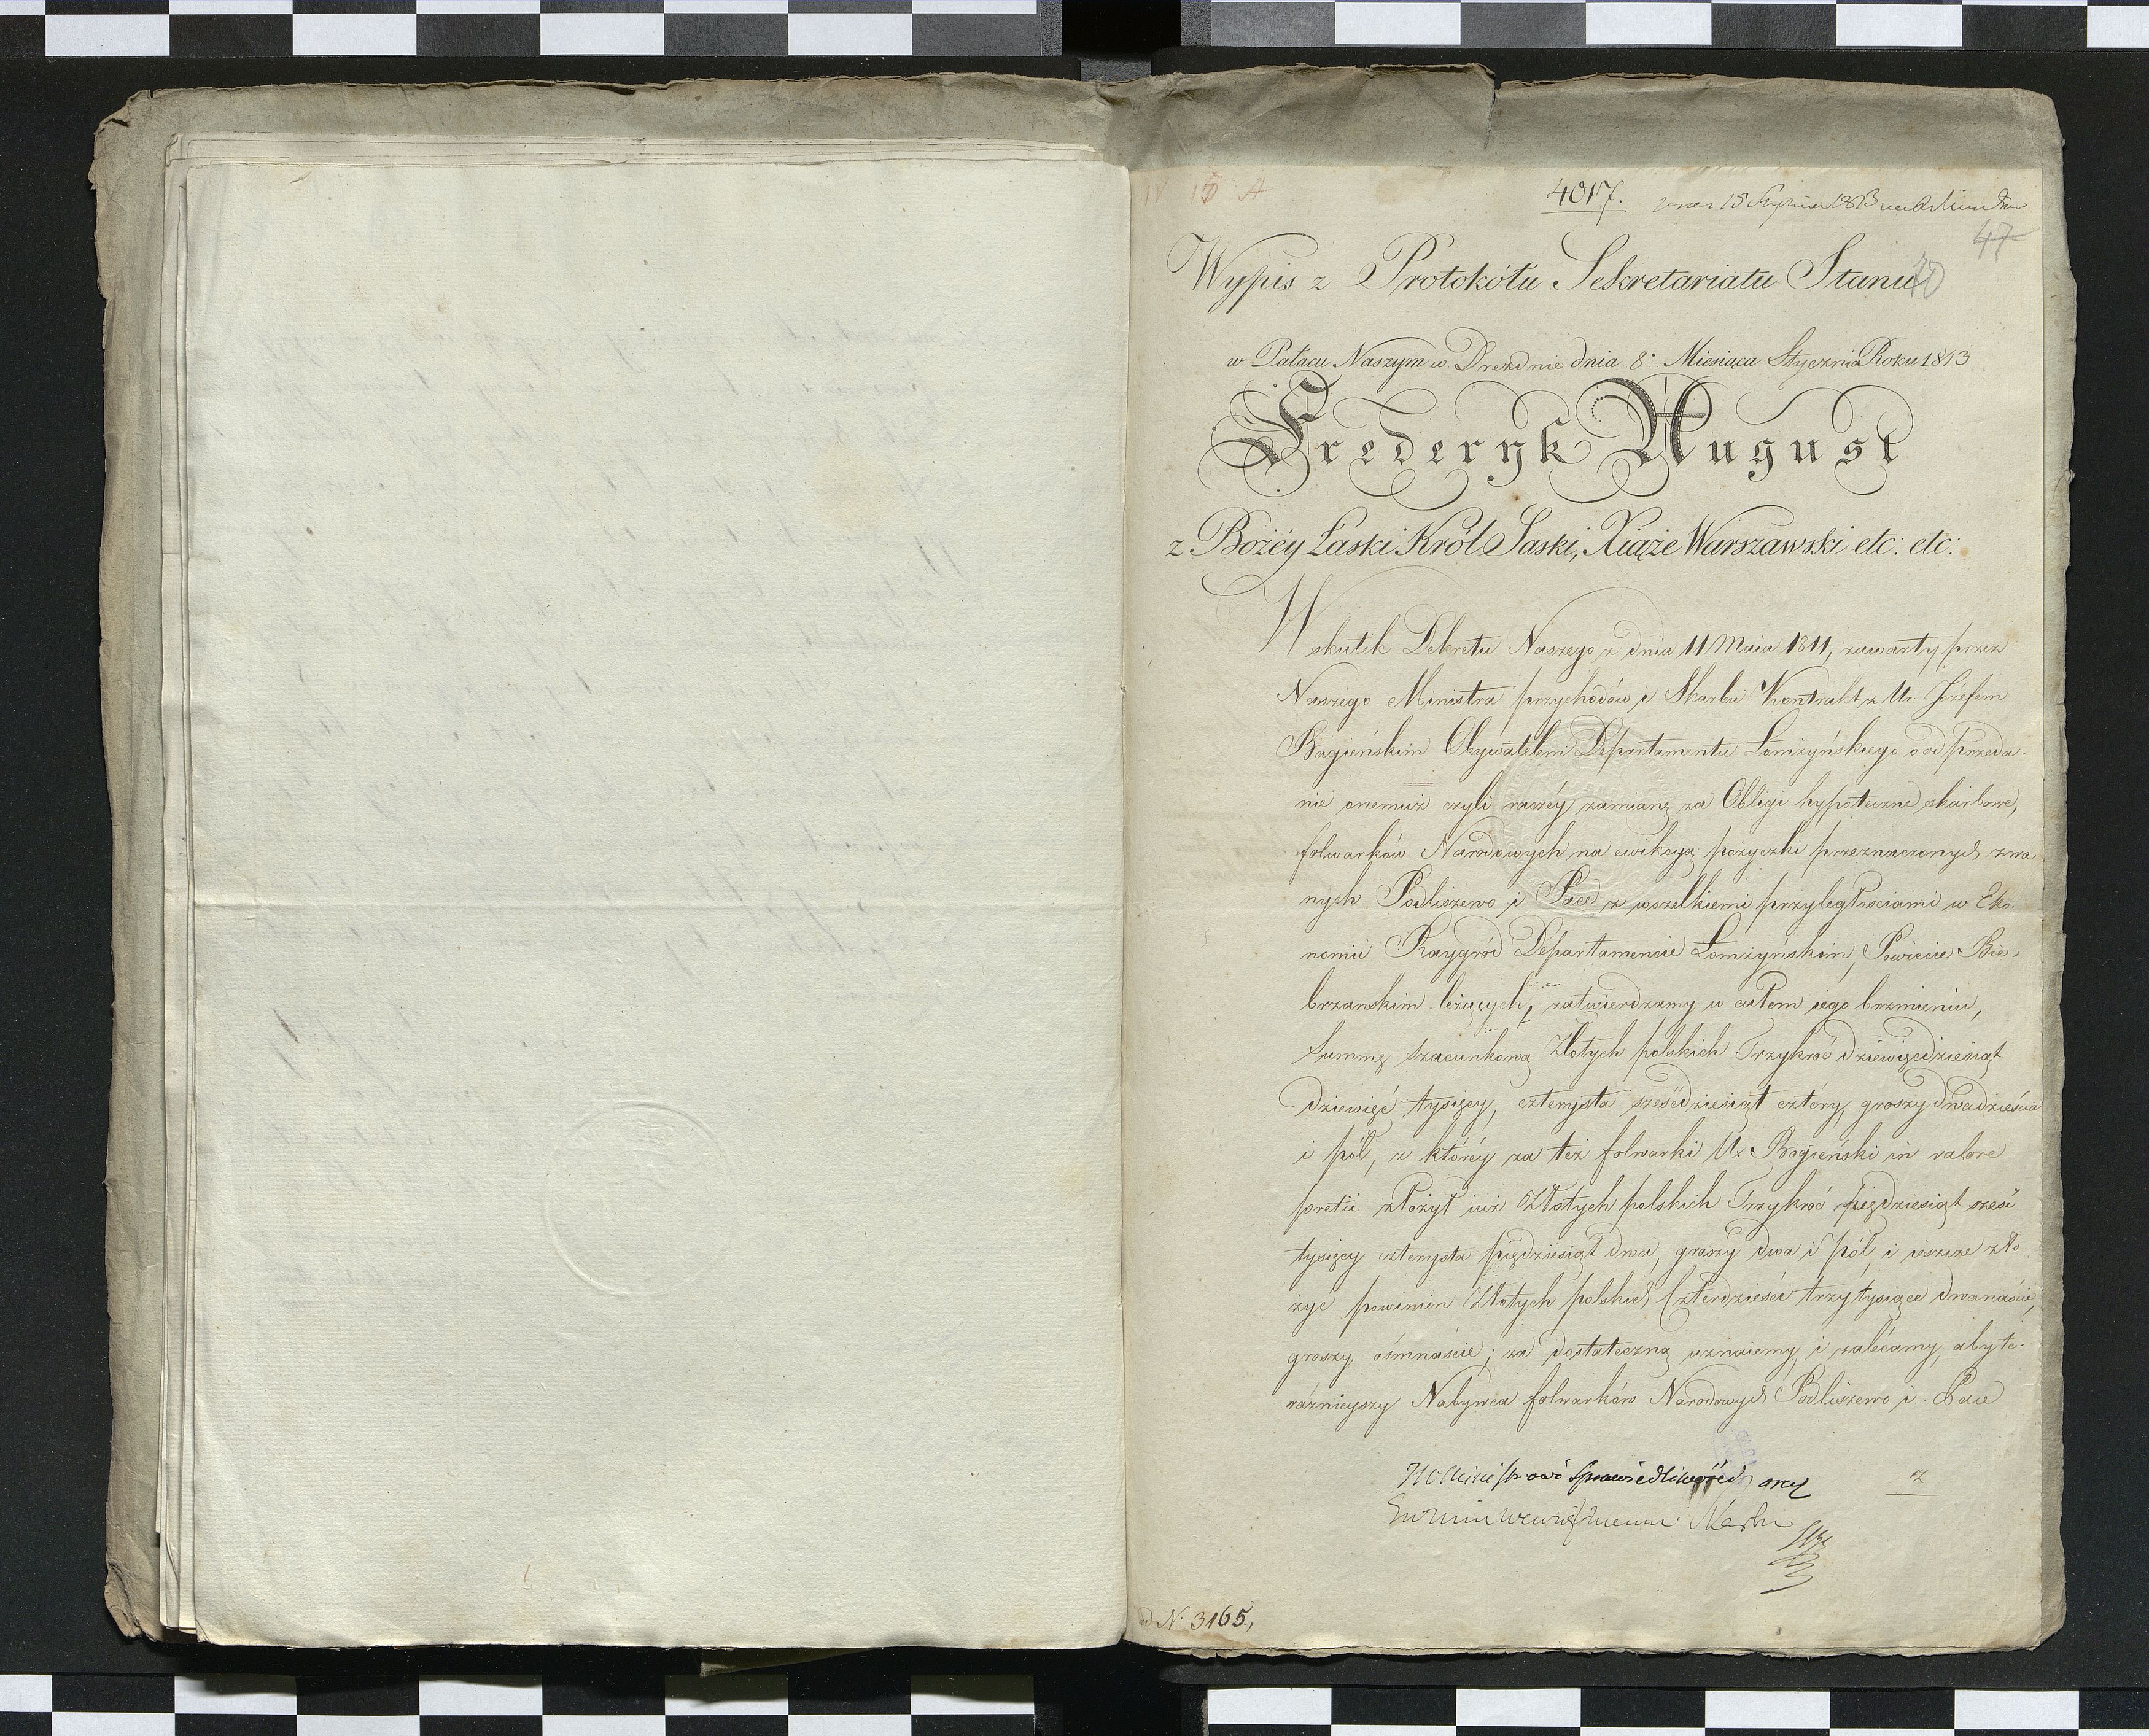 4017.
47
40
Wypis z Protokółu Sekretariatu Stanu
w Pałacu Naszym w Dreźdnie dnia 8. Miesiąca Stycznia Roku 1813
Frederyk August
z Bożéy Łaski Król Saski, Xiąże Warszawski etc: etc:
W skutek Dekretu Naszego z dnia 11 Maia 1811, zawarty przez
Naszego Ministra przychodów i Skarbu Kontrakt z Ur. Józefem
Bogieńskim Obywatelem Departamentu Łomżyńskiego o od przeda-
nie onemuż czyli raczéy zamianę za Obligi hypoteczne skarbowe,
folwarków Narodowych na ewikcyą pożyczki przeznaczonych zwa-
nych Podliszewo i Pace z wszelkiemi przyległościami w Eko-
nomii Raygród Departamencie Łomżyńskim, Powiecie Bie-
brzanskim leżących, zatwierdzamy w całem iego brzmieniu,
Summę szacunkową Złotych polskich Trzykroć dziewięćdziesiąt
dziewięć tysięcy, czterysta sześćdziesiąt cztery, groszy dwadzieścia
i pół, z któréy za też folwarki Ur. Bogieński in valore
pretii złożył iuż Złotych polskich Trzykroć pięćdziesiąt sześć
tysięcy czterysta pięćdziesiąt dwa, groszy dwa i pół, i ieszcze zło-
żyć powinien Złotych polskich Czterdzieści trzy tysiące dwanaście,
groszy ośmnaście; za dostateczną uznaiemy, i zalecamy, aby te-
raźnieyszy Nabywca folwarków Narodowych Podliszewo i Pace
Ministrowi Sprawiedliwości oraz
Skarbu
z
ad N. 3165,